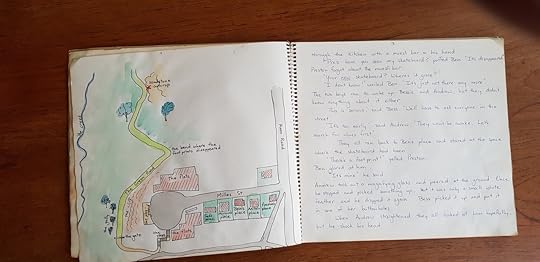 sandstone
outcrops
the creek
the bend where the
footprints disappeared
Main Road
The Flats
Millar St
Ben's
place
the gate
the flats
through the kitchen with a muesli bar in his hand
"Have you seen my skateboard?" puffed Ben. "It's disappeared."
Preston forgot about the muesli bar.
"Your new skateboard? Where's it gone?"
"I don't know," wailed Ben. "It's just not there any more."
The two boys ran to wake up Bessie and Andrew, but they didn't
know anything about it either.
"This is serious," said Bess. "We'll have to ask everyone in the
street."
"It's too early," said Andrew. "They won't be awake. Let's
search for clues first."
They all ran back to Ben's place and stared at the space
where the skateboard had been.
"There's a footprint!" yelled Preston.
Ben glared at him.
"It's mine," he said.
Andrew took out a magnifying glass and peered at the ground. Once
he stopped and picked something up, but it was only a small white
feather and he dropped it again. Bess picked it up and put it
in one of her buttonholes.
When Andrew straightened they all looked at him hopefully,
but he shook his head.